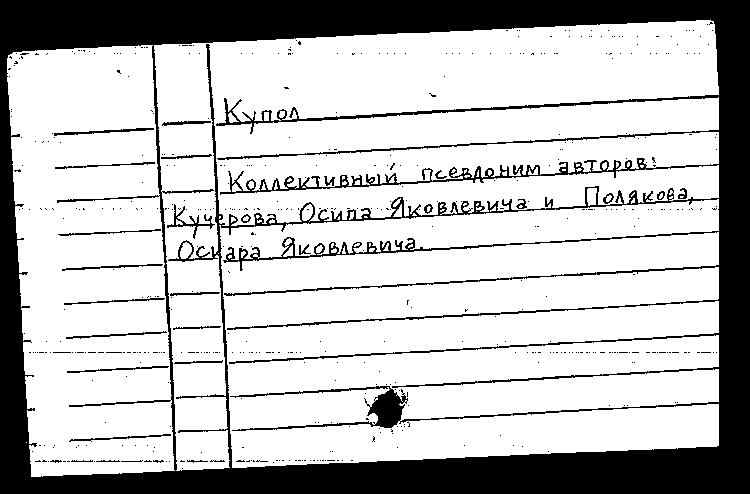 Купол
Коллективный псевдоним авторов:
Кучерова, Осипа Яковлевича и Полякова,
Оскара Яковлевича.